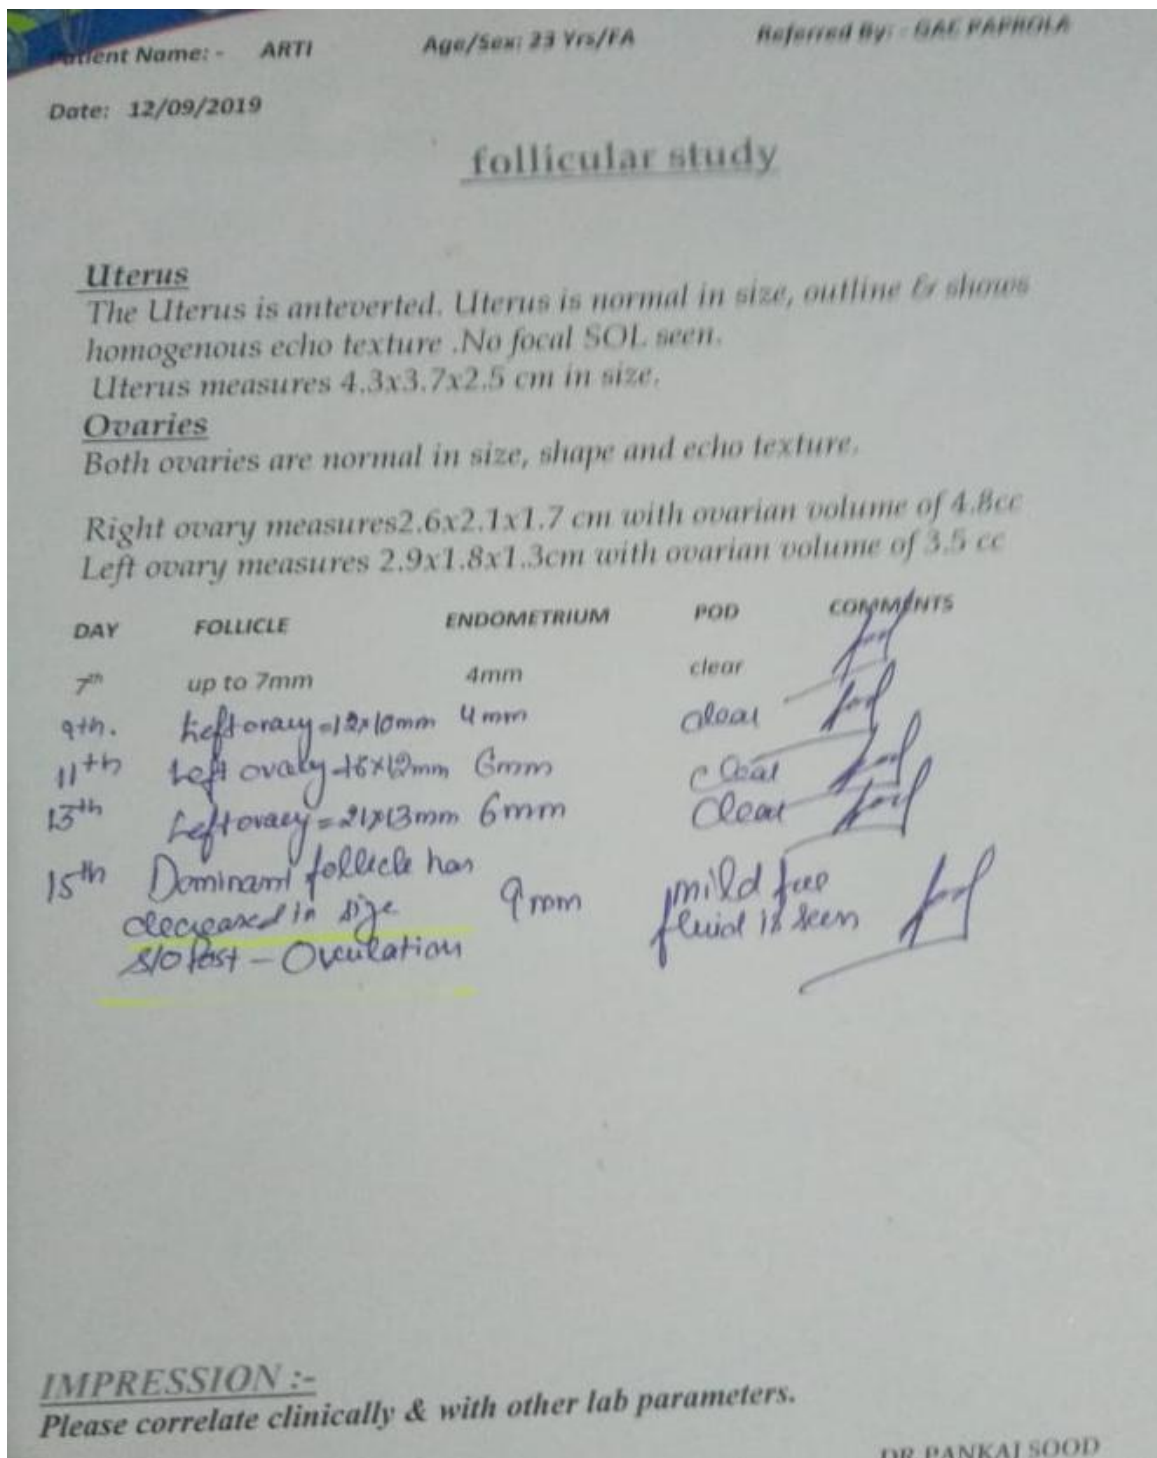 Patient Name: - ARTI Age/Sex: 23 Yrs/FA Referred By: - GAC PAPROLA
Date: 12/09/2019
follicular study
Uterus
The Uterus is anteverted. Uterus is normal in size, outline & shows
homogenous echo texture .No focal SOL seen.
Uterus measures 4.3x3.7x2.5 cm in size.
Ovaries
Both ovaries are normal in size, shape and echo texture.
Right ovary measures2.6x2.1x1.7 cm with ovarian volume of 4.8cc
Left ovary measures 2.9x1.8x1.3cm with ovarian volume of 3.5 cc
DAY FOLLICLE ENDOMETRIUM POD COMMENTS
7th up to 7mm 4mm clear
9th. Left ovary=12x10mm 4mm clear
11th Left ovary=16x12mm 6mm clear
13th Left ovary=21x13mm 6mm Clear
15th Dominant follicle has
decreased in size 9mm mild free
S/O Post-Ovulation fluid is seen
IMPRESSION :-
Please correlate clinically & with other lab parameters.
DR PANKAJ SOOD